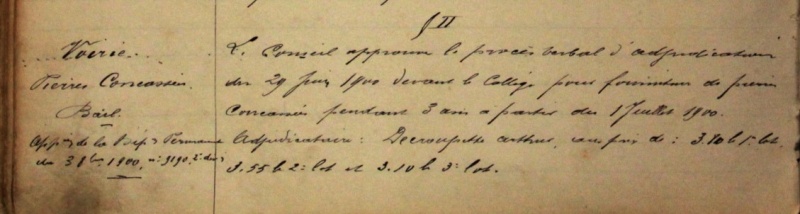 § II
Voirie.
Pierres Concassées.
Bail.
App^on de la Dép^on Permanente
du 31 1900. n° 9190. 2e don
Le Conseil approuve le procès verbal d'adjudication
du 29 Juin 1900 devant le Collège pour fourniture de pierres
Concassées pendant 3 ans à partir du 1 Juillet 1900.
Adjudicataire: Decroupette arthur, au prix de: 3.70 le 1r lot,
3.55 le 2e lot et 3.10 le 3e lot.